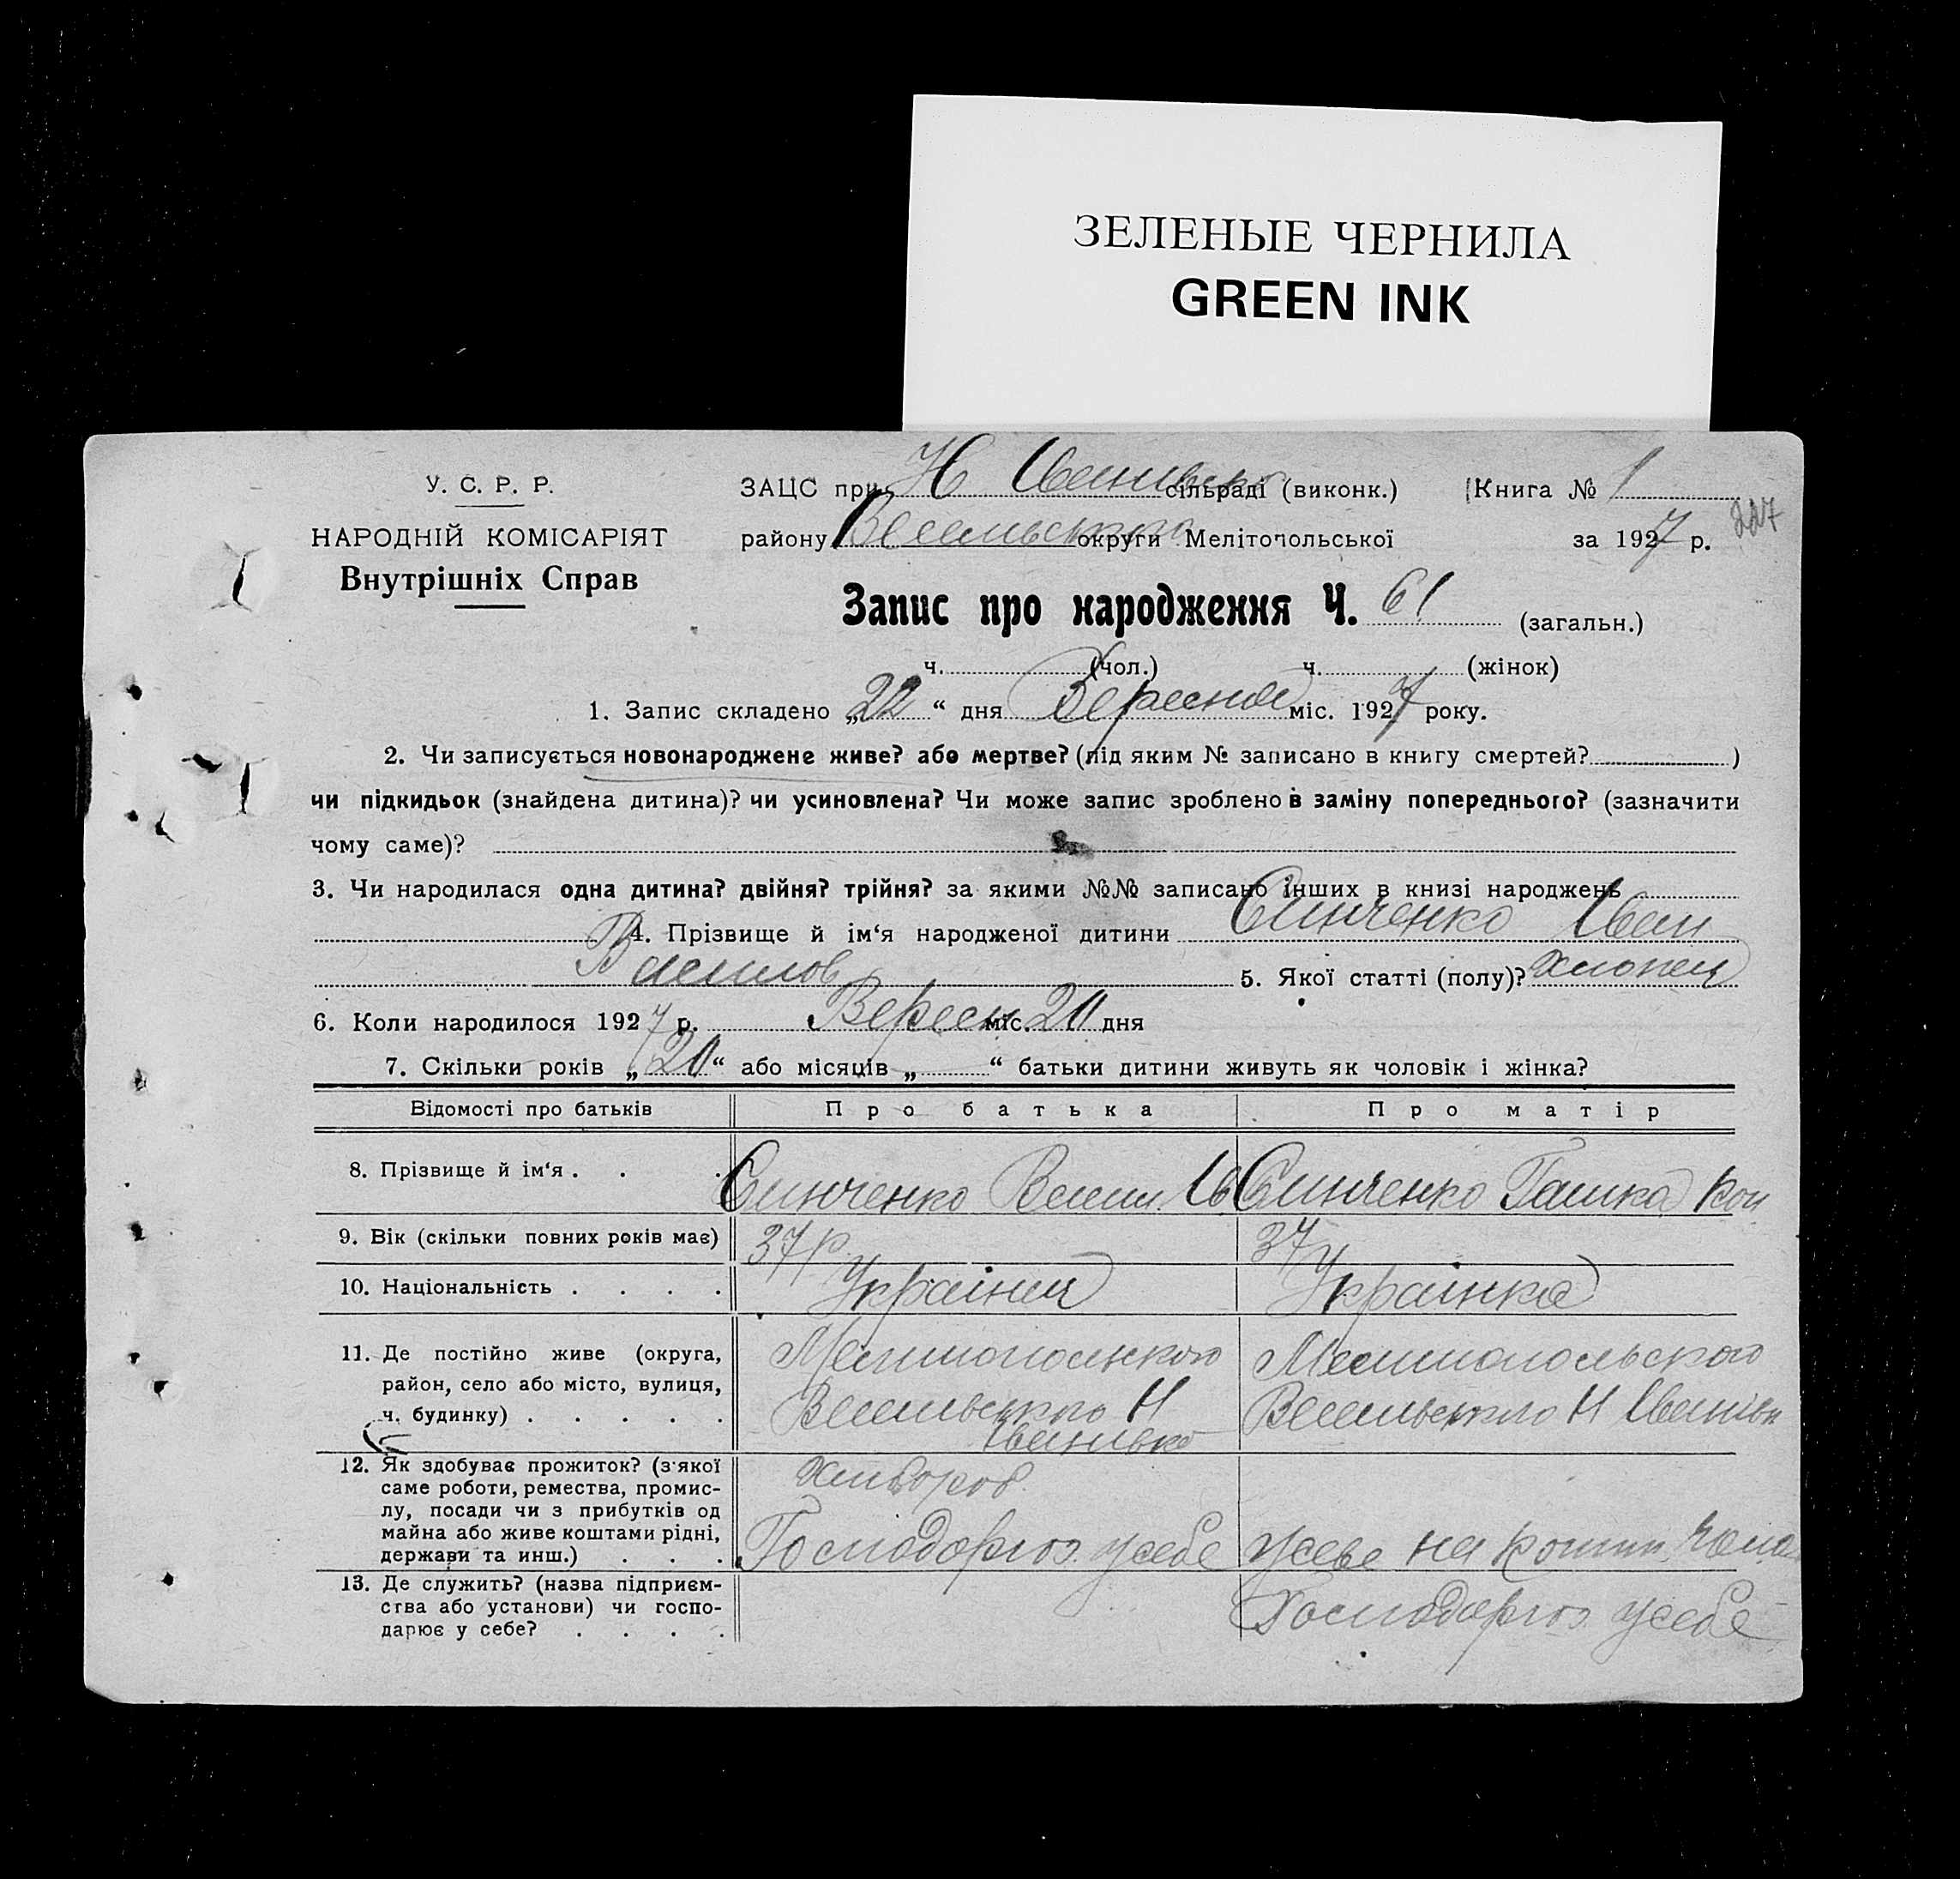 ЗЕЛЕНЫЕ ЧЕРНИЛА
GREEN INK
У. С. Р. Р.
НАРОДНІЙ КОМІСАРІЯТ
Внутрішніх Справ
ЗАЦС при Н Іванівско сільраді (виконк.) Книга № 1
району Весельського округи Мелітопольської за 1927 р. 227
Запис про народження Ч. 61 (загальн.)
ч. (чол.) ч. (жінок)
1. Запис складено „22“ дня Вересня міс. 1927 року.
2. Чи записується новонароджене живе? або мертве? (під яким № записано в книгу смертей? )
чи підкидьок (знайдена дитина)? чи усиновлена? Чи може запис зроблено в заміну попереднього? (зазначити
чому саме)?
3. Чи народилася одна дитина? двійня? трійня? за якими №№ записано інших в книзі народжень
4. Прізвище й ім‘я народженої дитини Синченко Іван
Василов 5. Якої статті (полу)? Хлопец
6. Коли народилося 1927 р. Вересн міс. 20 дня
7. Скільки років „20“ або місяців „ “ батьки дитини живуть як чоловік і жінка?
Відомості про батьків Про батька Про матір
8. Прізвище й ім‘я . . . Синченко Васил. Ів Синченко Пашка
9. Вік (скільки повних років має) 37 р. 37
10. Національність . . . . Українец Українка
11. Де постійно живе (округа, Мелитополського Мелитопольского
район, село або місто, вулиця, Весельського Н Весельського Н Іванівк
ч. будинку) . . . . . Іванивко
12. Як здобуває прожиток? (з'якої Хлибороб.
саме роботи, ремества, промис-
лу, посади чи з прибутків од
майна або живе коштами рідні, Господорюэ усебе на кошти
держави та инш.) . . .
13. Де служить? (назва підприєм-
ства або установи) чи госпо- Господорюэ усебе
дарює у себе? . . . .